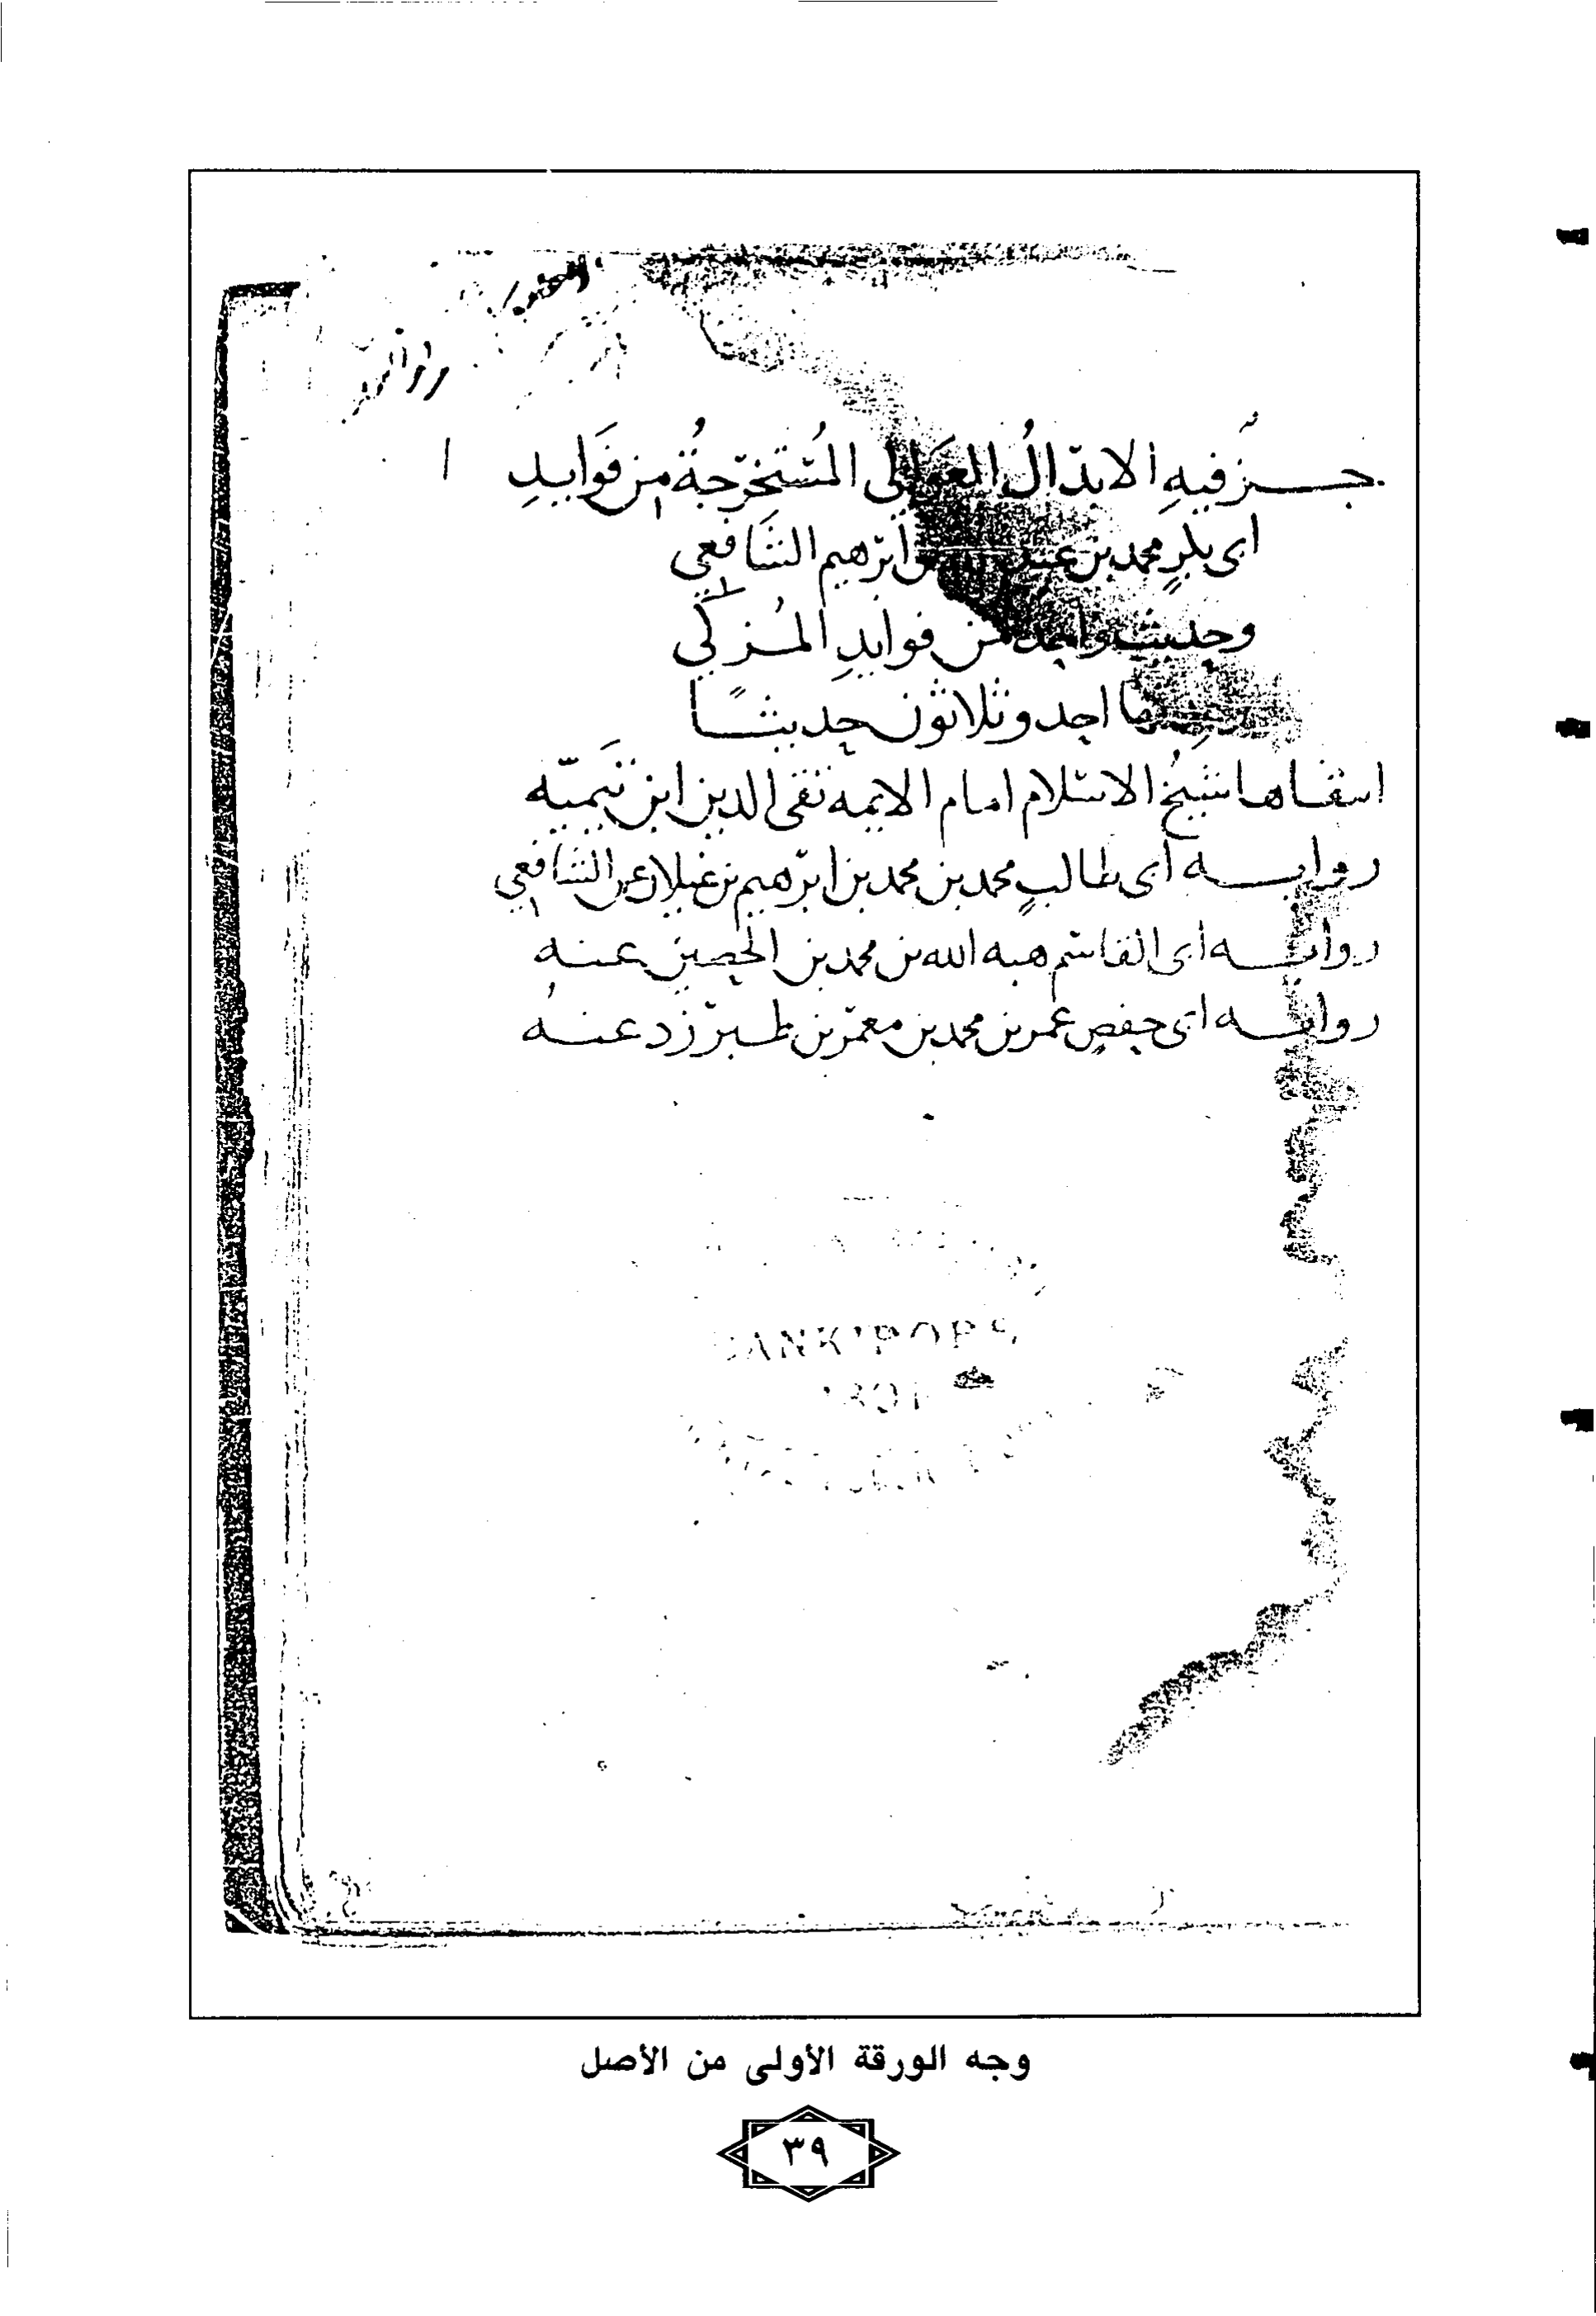 جزٌ فيهِ الابدّالُ العَوالى المُسْتخرّجةُ مِن فَوايدِ
ابى بكرٍ محمد بن عبد ابرهيم الشافعي
وحديث واحد من فوايدِ المُزكّي
احد وثلاثون حديثًا
انتقاها شيخُ الاسلام امام الايمه تقى الدين ابن تَيميّه
روايه ابى طالبٍ محمد بن محمد بن ابرهيم بن غيلان عن الشافعي
روايه ابى القاسم هبه الله بن محمد بن الحصين عنه
روايه ابى حفصٍ عمر بن محمد بن معمّر بن طبرزد عنهُ
وجه الورقة الأولى من الأصل
٣٩